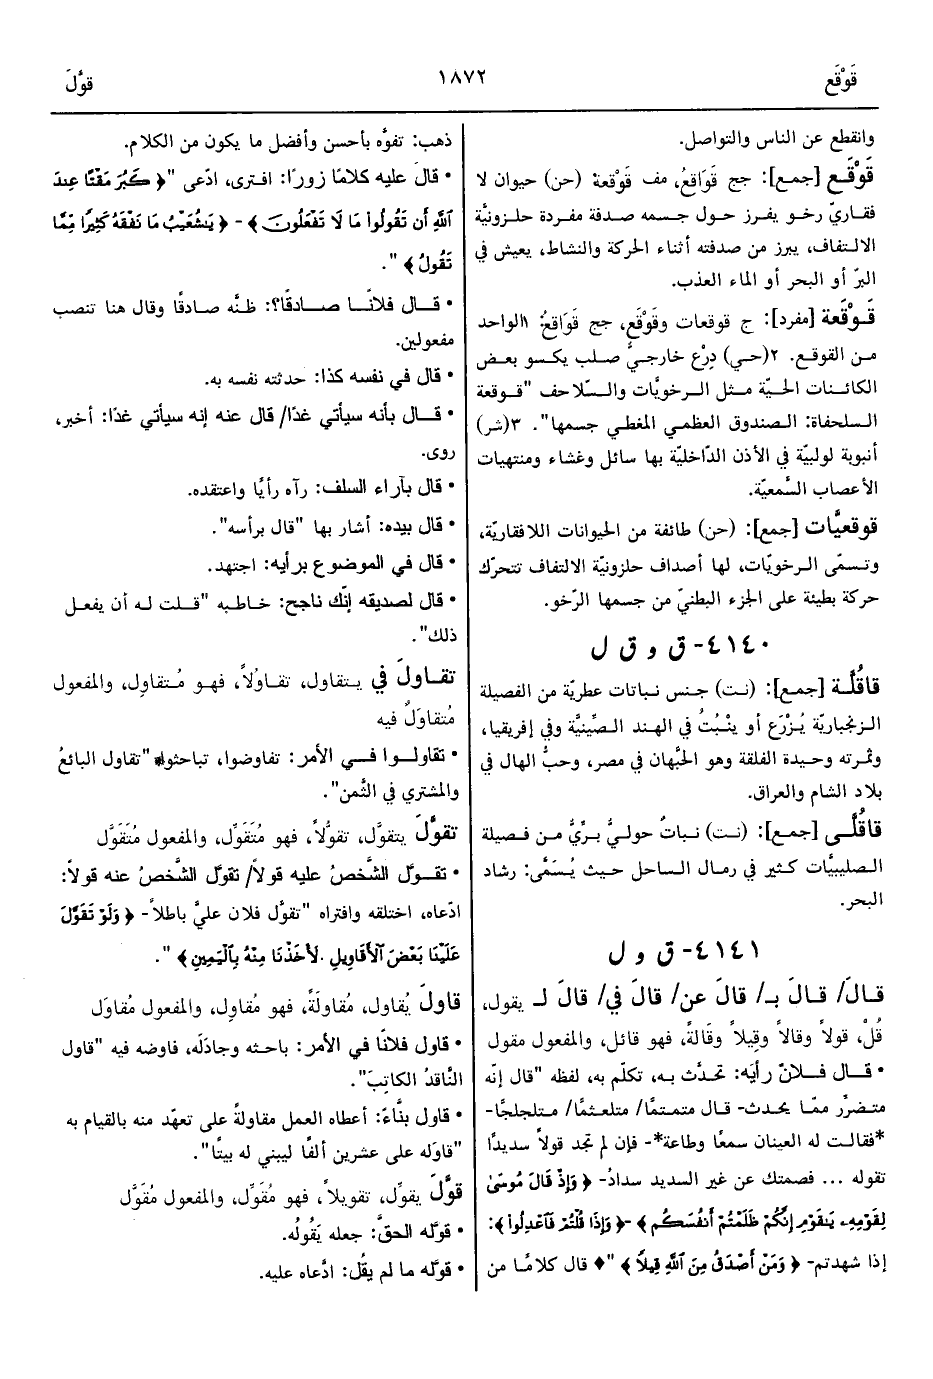 قَوْقَع ١٨٧٢ قوَّلَ
وانقطع عن الناس والتواصل.
قَوْقَع [جمع]: جج قَوَاقِعُ، مف قَوْقعة (حن) حيوان لا
فقاريّ رخو يفرز حول جسمه صدفة مفردة حلزونيَّة
الالتفاف، يبرز من صدفته أثناء الحركة والنشاط، يعيش في
البرّ أو البحر أو الماء العذب.
قَوْقَعة [مفرد]: ج قوقعات وقَوْقَع، جج قَوَاقِعُ: ١الواحد
من القوقع. ٢(حي) دِرْع خارجيُّ صلب يكسو بعض
الكائنات الحيّة مثل الرخويَّات والسَّلاحف "قوقعة
السلحفاة: الصندوق العظمي المغطي جسمها". ٣(شر)
أنبوبة لولبيّة في الأذن الدَّاخليّة بها سائل وغشاء ومنتهيات
الأعصاب السَّمعيّة.
قوقعيَّات [جمع]: (حن) طائفة من الحيوانات اللافقاريّة،
وتسمّى الرخويّات، لها أصداف حلزونيّة الالتفاف تتحرّك
حركة بطيئة على الجزء البطنيّ من جسمها الرّخو.
٤١٤٠- ق و ق ل
قاقُلَّة [جمع]: (نت) جنس نباتات عطريّة من الفصيلة
الزنجباريّة يُزْرَع أو ينْبُتُ في الهند الصِّينيَّة وفي إفريقيا،
وثمرته وحيدة الفلقة وهو الحَبَّهان في مصر، وحبُّ الهال في
بلاد الشام والعراق.
قاقُلَّى [جمع]: (نت) نباتٌ حوليُّ بريُّ من فصيلة
الصليبيَّات كثير في رمال الساحل حيث يُسَمَّى: رشاد
البحر.
٤١٤١- ق و ل
قالَ/ قالَ بـ/ قالَ عن/ قالَ في/ قالَ لـ يقول،
قُلْ، قولاً وقالاً وقِيلاً وقَالةً، فهو قائل، والمفعول مقول
• قال فلانٌ رأيَه: تحدَّث به، تكلّم به، لفظه "قال إنّه
متضرِّر ممّا يحدث- قال متمتمًا/ متلعثمًا/ متلجلجًا-
*فقالت له العينان سمعًا وطاعة*- فإن لم تجد قولاً سديدًا
تقوله ... فصمتك عن غير السديد سدادُ- ﴿ وَإِذْ قَالَ مُوسَىٰ
لِقَوْمِهِۦ يَـٰقَوْمِ إِنَّكُمْ ظَلَمْتُمْ أَنفُسَكُم ﴾ -﴿ وَإِذَا قُلْتُمْ فَٱعْدِلُواْ﴾:
إذا شهدتم- ﴿ وَمَنْ أَصْدَقُ مِنَ ٱللَّهِ قِيلاً ﴾ "♦ قال كلامًا من
ذهب: تفوَّه بأحسن وأفضل ما يكون من الكلام.
• قالَ عليه كلامًا زورًا: افترى، ادّعى "﴿ كَبُرَ مَقْتًا عِندَ
ٱللَّهِ أَن تَقُولُواْ مَا لَا تَفْعَلُونَ ﴾ - ﴿ يَـٰشُعَيْبُ مَا نَفْقَهُ كَثِيرًا مِّمَّا
تَقُولُ ﴾ ".
• قال فلانًا صادقًا؟: ظنَّه صادقًا وقال هنا تنصب
مفعولين.
• قال في نفسه كذا: حدثته نفسه به.
• قال بأنه سيأتي غدًا/ قال عنه إنه سيأتي غدًا: أخبر،
روى.
• قال بآراء السلف: رآه رأيًا واعتقده.
• قال بيده: أشار بها "قال برأسه".
• قال في الموضوع برأيه: اجتهد.
• قال لصديقه إنّك ناجح: خاطبه "قلت له أن يفعل
ذلك".
تقاولَ في يتقاول، تقاوُلاً، فهو مُتقاوِل، والمفعول
مُتقاوَلٌ فيه
• تقاولوا في الأمر: تفاوضوا، تباحثوا "تقاول البائعُ
والمشتري في الثَّمن".
تقوَّلَ يتقوَّل، تقوُّلاً، فهو مُتَقَوِّل، والمفعول مُتَقَوَّل
• تقوَّل الشَّخصُ عليه قولاً/ تقوّل الشَّخصُ عنه قولاً:
ادّعاه، اختلقه وافتراه "تقوَّل فلان عليَّ باطلاً- ﴿ وَلَوْ تَقَوَّلَ
عَلَيْنَا بَعْضَ ٱلْأَقَاوِيلِ .لَأَخَذْنَا مِنْهُ بِٱلْيَمِينِ ﴾ ".
قاولَ يُقاول، مُقاولَةً، فهو مُقاوِل، والمفعول مُقاوَل
• قاول فلانًا في الأمر: باحثه وجادَلَه، فاوضه فيه "قاول
النَّاقدُ الكاتِبَ".
• قاول بنَّاءً: أعطاه العمل مقاولةً على تعهّد منه بالقيام به
"قاوَله على عشرين ألفًا ليبني له بيتًا".
قوَّلَ يقوِّل، تقويلاً، فهو مُقَوِّل، والمفعول مُقَوَّل
• قوَّله الحقَّ: جعله يَقُولُه.
• قوَّله ما لم يقُل: ادَّعاه عليه.